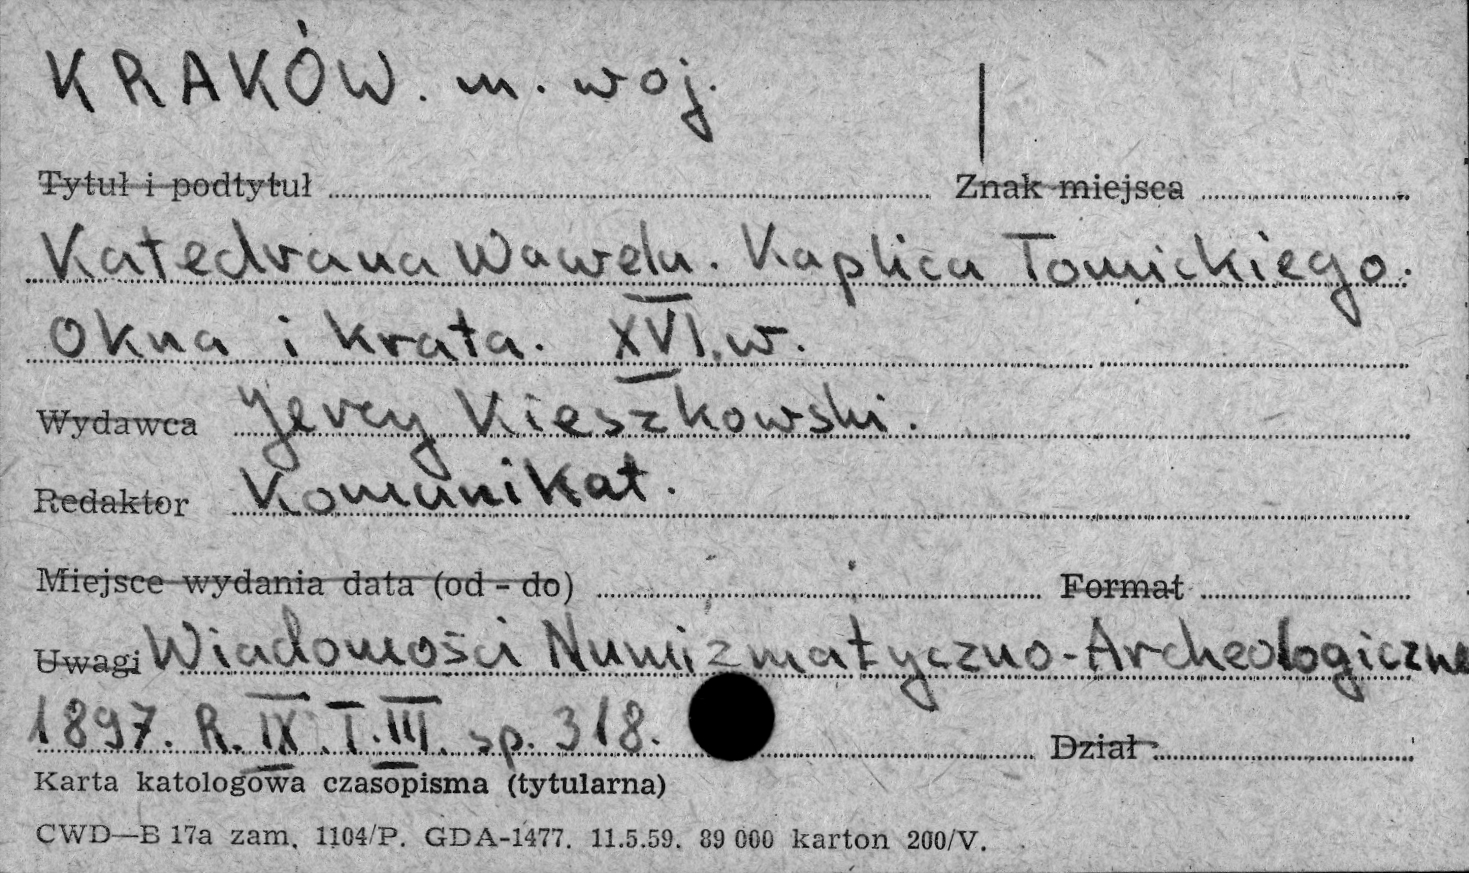 KRAKÓW. m. woj.
Tytuł i podtytuł Znak miejsca
Katedrana Wawelu. Kaplica Tomickiego.
Okna i krata. XVI.w.
Wydawca Jerzy Kieszkowski.
Redaktor Komunikat.
Miejsce wydania data (od - do) Format
Uwagi Wiadomości Numizmatyczno-Archeologiczne
1897. R. IX. T. III. sp. 318. Dział
Karta katologowa czasopisma (tytularna)
CWD—B 17a zam. 1104/P. GDA-1477. 11.5.59. 89 000 karton 200/V.